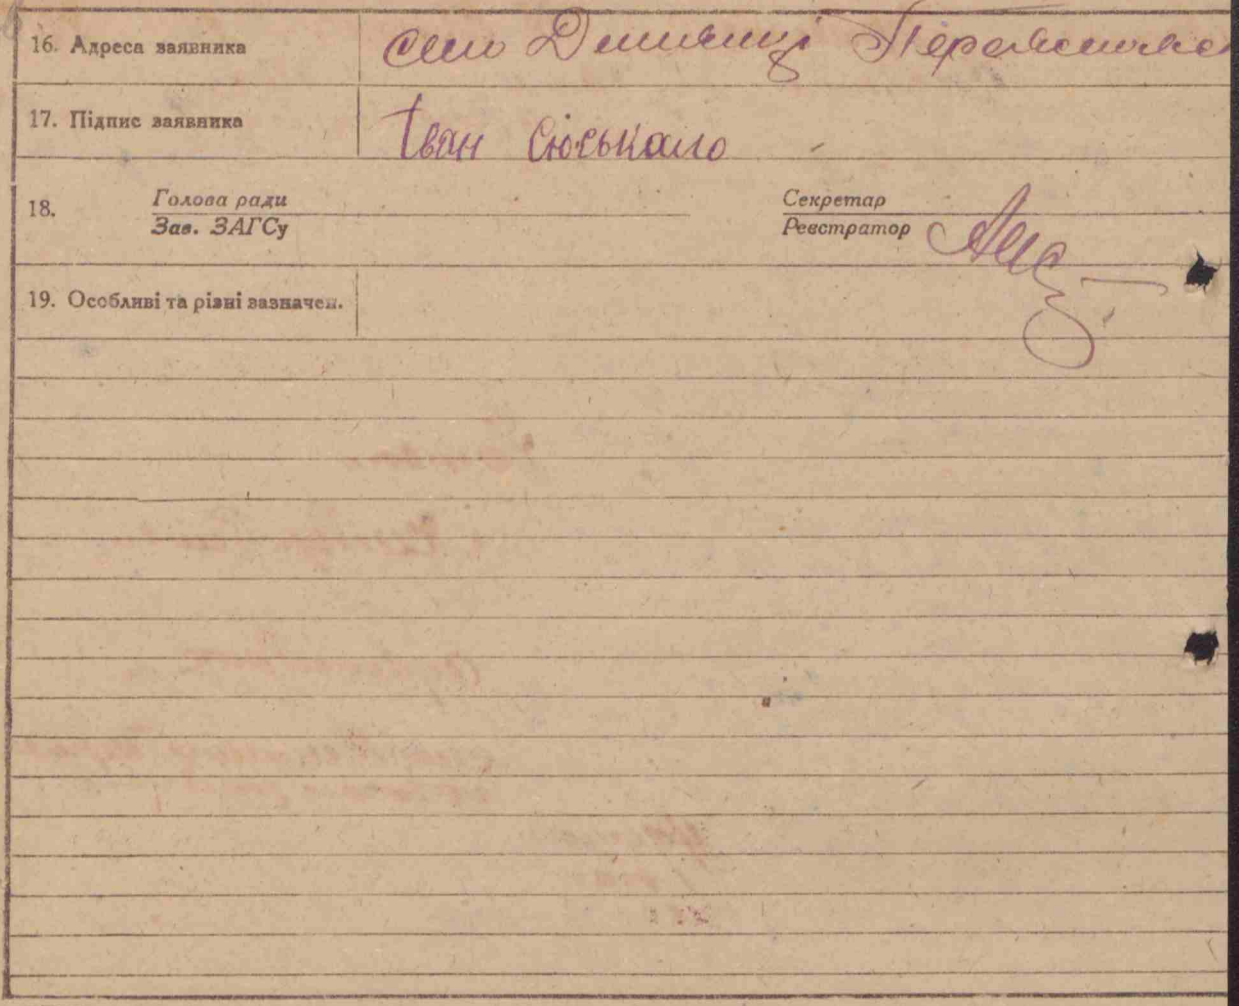 16. Адреса заявника село Демьянці Переяславс
17. Підпис заявника Іван Сюськало
18. Голова ради Секретар
Зав. ЗАГСу Реєстратор
19. Особливі та різні зазначен.